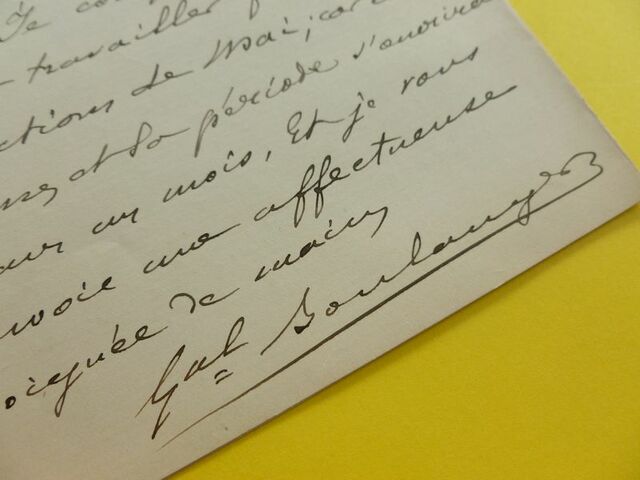 Je
travailler
ctions de Mai, car
et la période s'ouvrira
un mois, Et je vous
envoie une affectueuse
poignée de main
Gal Boulanger